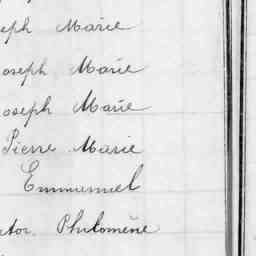 eph Marie
oseph Marie
oseph Marie
Pierre Marie
Emmanuel
ator. Philomène